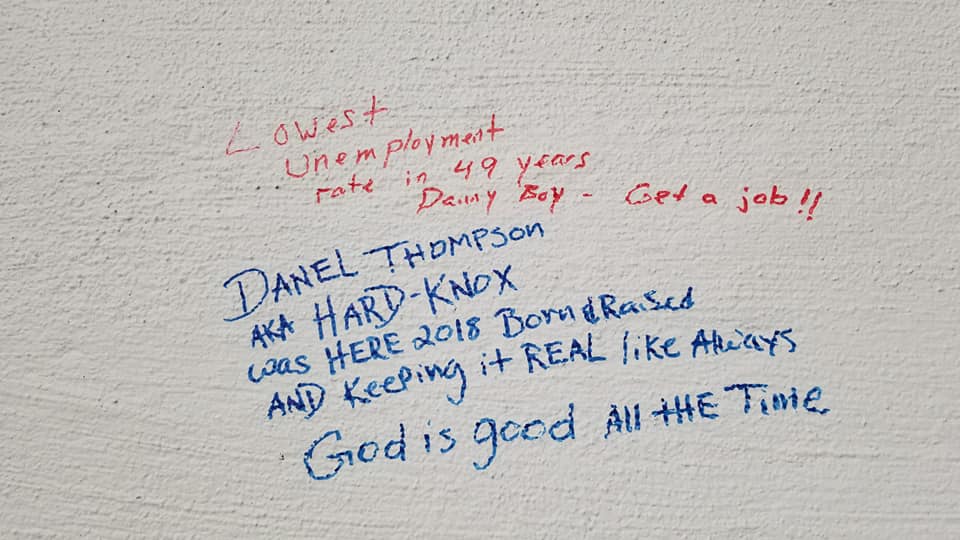 Lowest
Unemployment
rate in 49 years
Danny Boy - Get a job!!
DANEL THOMPSON
AKA HARD-KNOX
was HERE 2018 Born & Raised
AND Keeping it REAL like Always
God is good All tHE Time